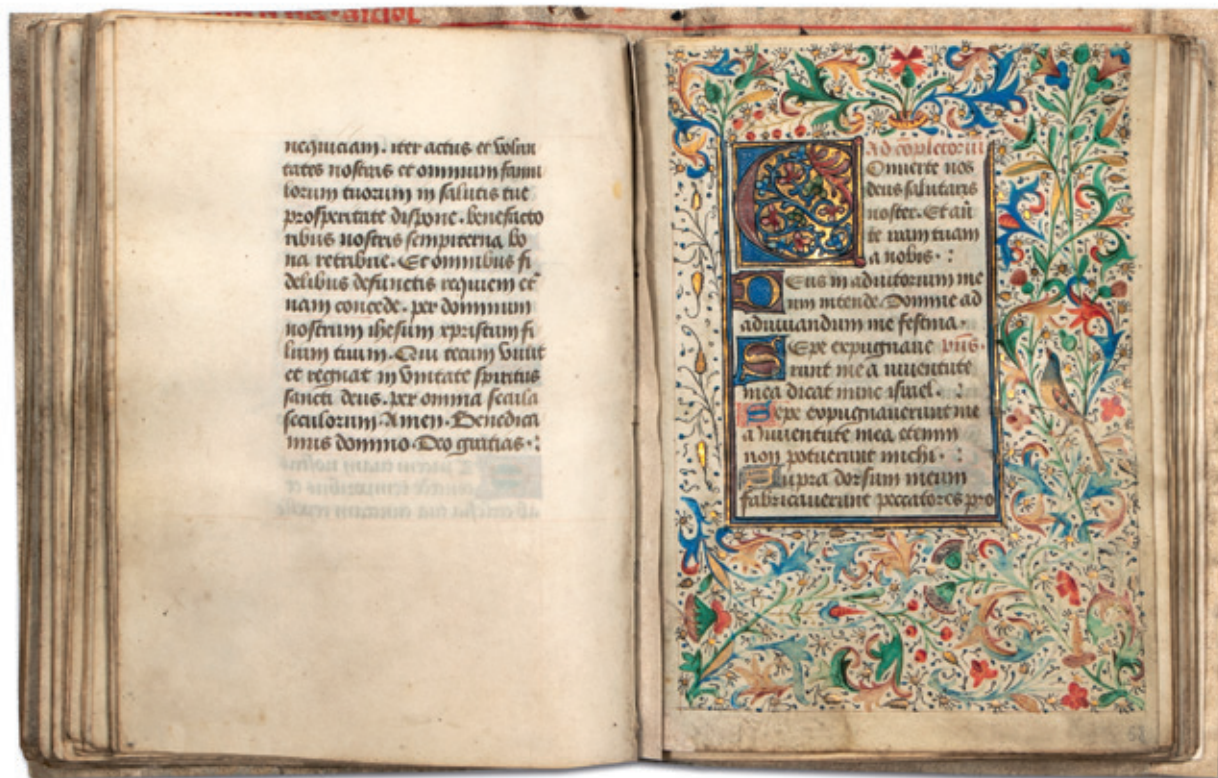 nequiciam. iter actus et volun
tates nostras et omnium famu
lorum tuorum in salutis tue
prosperitate dispone. benefacto
ribus nostris sempiterna bo
na retribue. Et omnibus fi
delibus defunctis requiem et̄
nam concede. per dominum
nostrum ihesum xpristum fi
lium tuum. Qui tecum viuit
et regnat in vnitate spiritus
sancti deus. per omnia secula
seculorum. Amen. Benedica
mus domino. Deo gratias.
Ad cōpletoriū
Conuerte nos
deus salutaris
noster. Et au̅
te iram tuam
a nobis.
Deus in adiutorium me
um intende. Domine ad
adiuuandum me festina.
Sepe expugnaue p̄us.
runt me a iuuentute
mea dicat nunc israel.
Sepe expugnauerunt me
a iuuentute mea etenim
non potuerunt michi.
Supra dorsum meum
fabricauerunt peccatores pro
52